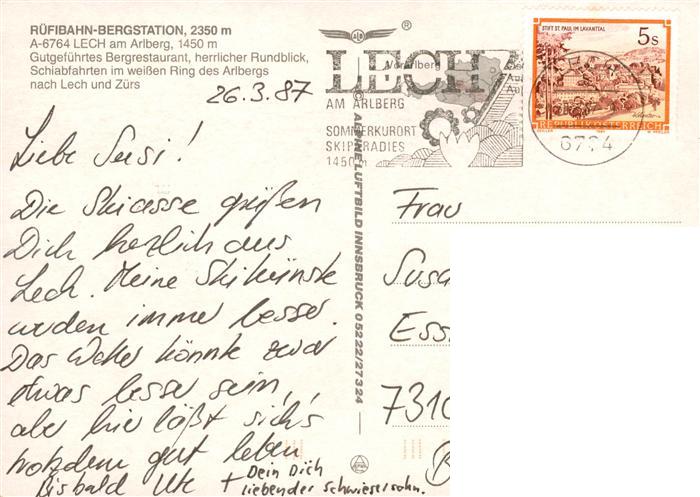 RÜFIBAHN-BERGSTATION, 2350 m
A-6764 LECH am Arlberg, 1450 m
Gutgeführtes Bergrestaurant, herrlicher Rundblick,
Schiabfahrten im weißen Ring des Arlbergs
nach Lech und Zürs
26.3.87
Liebe Susi!
Die Skiasse grüßen
Dich herzlich aus
Lech. Meine Skikünste
werden immer besser.
Das Wetter könnte zwar
etwas besser sein,
aber hier läßt sich's
trotzdem gut leben
Bis bald Ute +
Dein Dich
liebender Schwiegersohn.
®
Vorarlberg
LECH
AM ARLBERG
SOMMERKURORT
SKIPARADIES
1450m
ALPINE LUFTBILD INNSBRUCK 05222/27324
STIFT ST. PAUL IM LAVANTTAL
5s
REPUBLIK ÖSTERREICH
Frau
Susa
Ess
7310